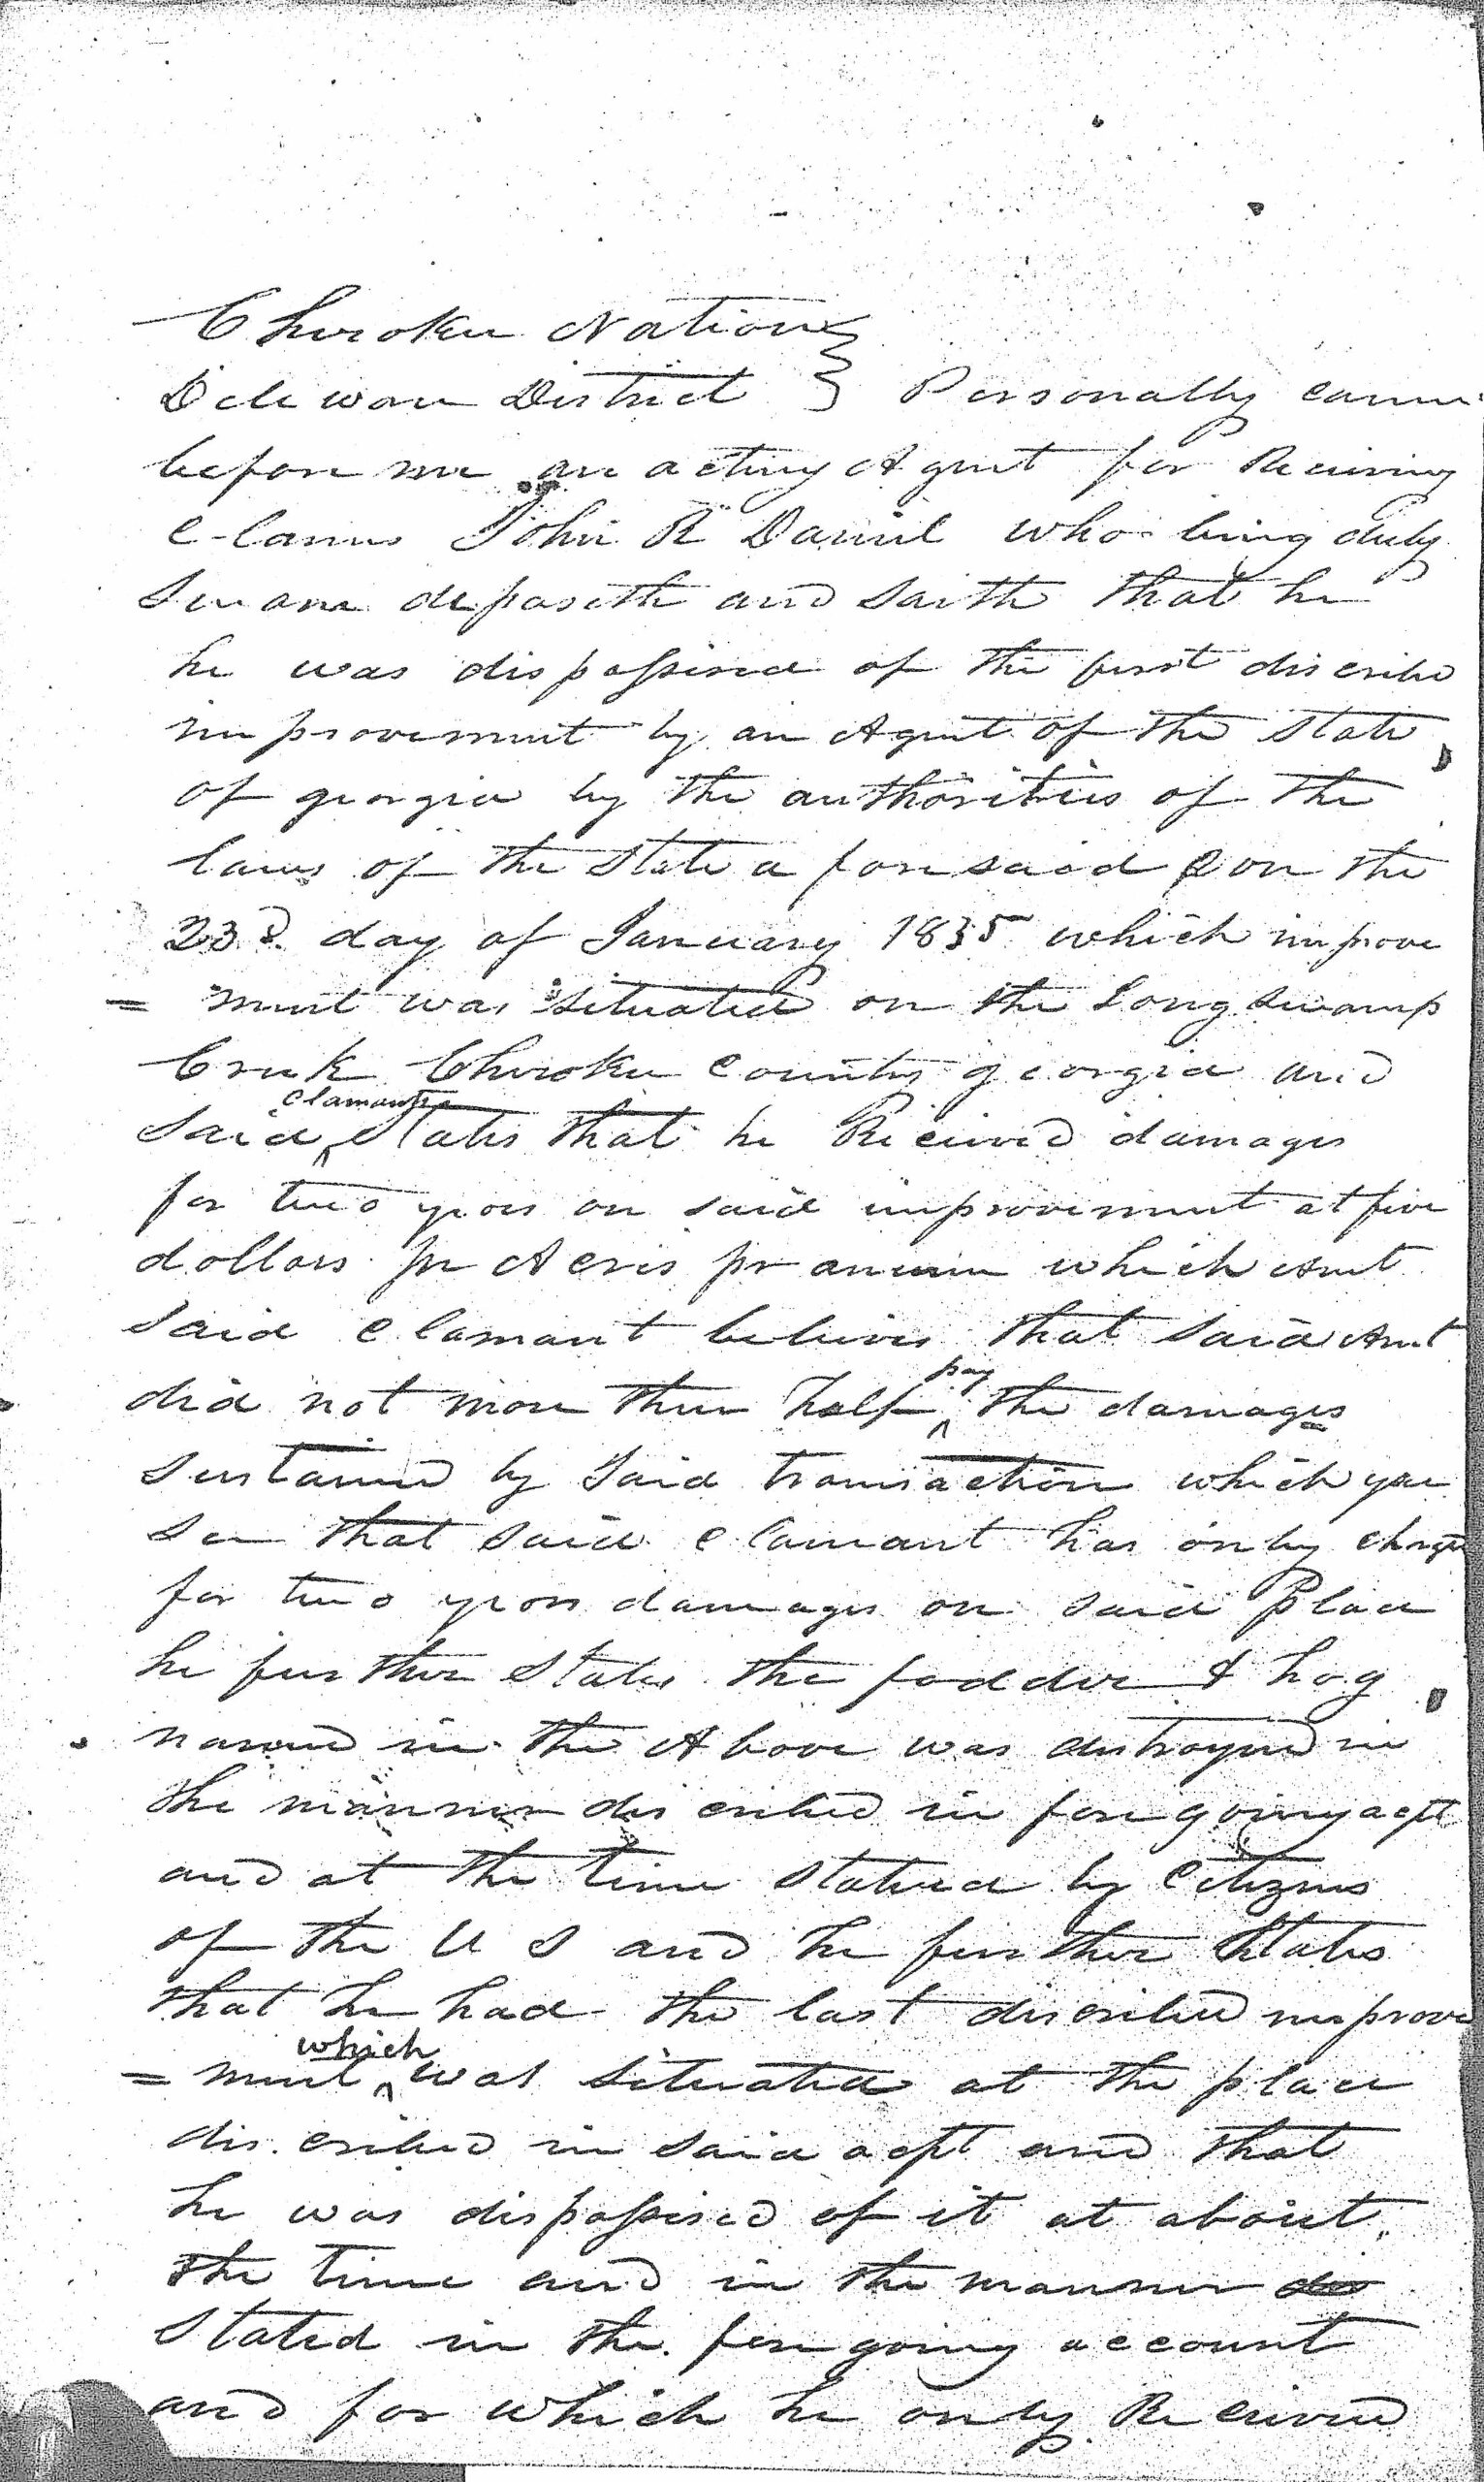 Cherokee Nation }
Delewore District } Personally came
before me an acting Agent for Receiving
Clames John R Daniel who being duly
Swarn deposeth and saith that he
he was dispossesed of the first discribe
improvement by an Agent of the State
of georgia by the authorities of the
laws of the State aforesaid on the
23d day of January 1835 which improve
= ment was situated on the Long Swamp
Creek Cherokee County georgia and
said clamant States that he Received damages
for two years on said improvement at five
dollars pr Acres pr annum which Amt
said Clamant believes that said Amt
did not more then half pay the damages
sustained by said transaction which you
see that said Clamant has only charged
for two years damages on said Place
he further States the fodder & hog
named in the Above was destroyed in
the manner discribed in foregoing acpt
and at the time stated by Citizens
of the U S and he further States
that he had the last discribed improve
= ment which was situated at the place
discribed in said acpt and that
he was dispossesed of it at about
the time and in the manner
stated in the foregoing account
and for which he only Received